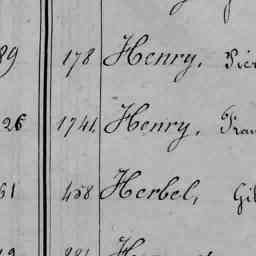 89 178 Henry, Pier
26 1741. Henry, Fran
61 458 Herbel, Gil